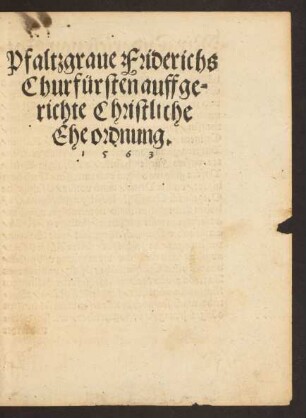 Pfaltzgraue Friderichs
Churfürsten auffge-
richte Christliche
Ehe ordnung.
1563